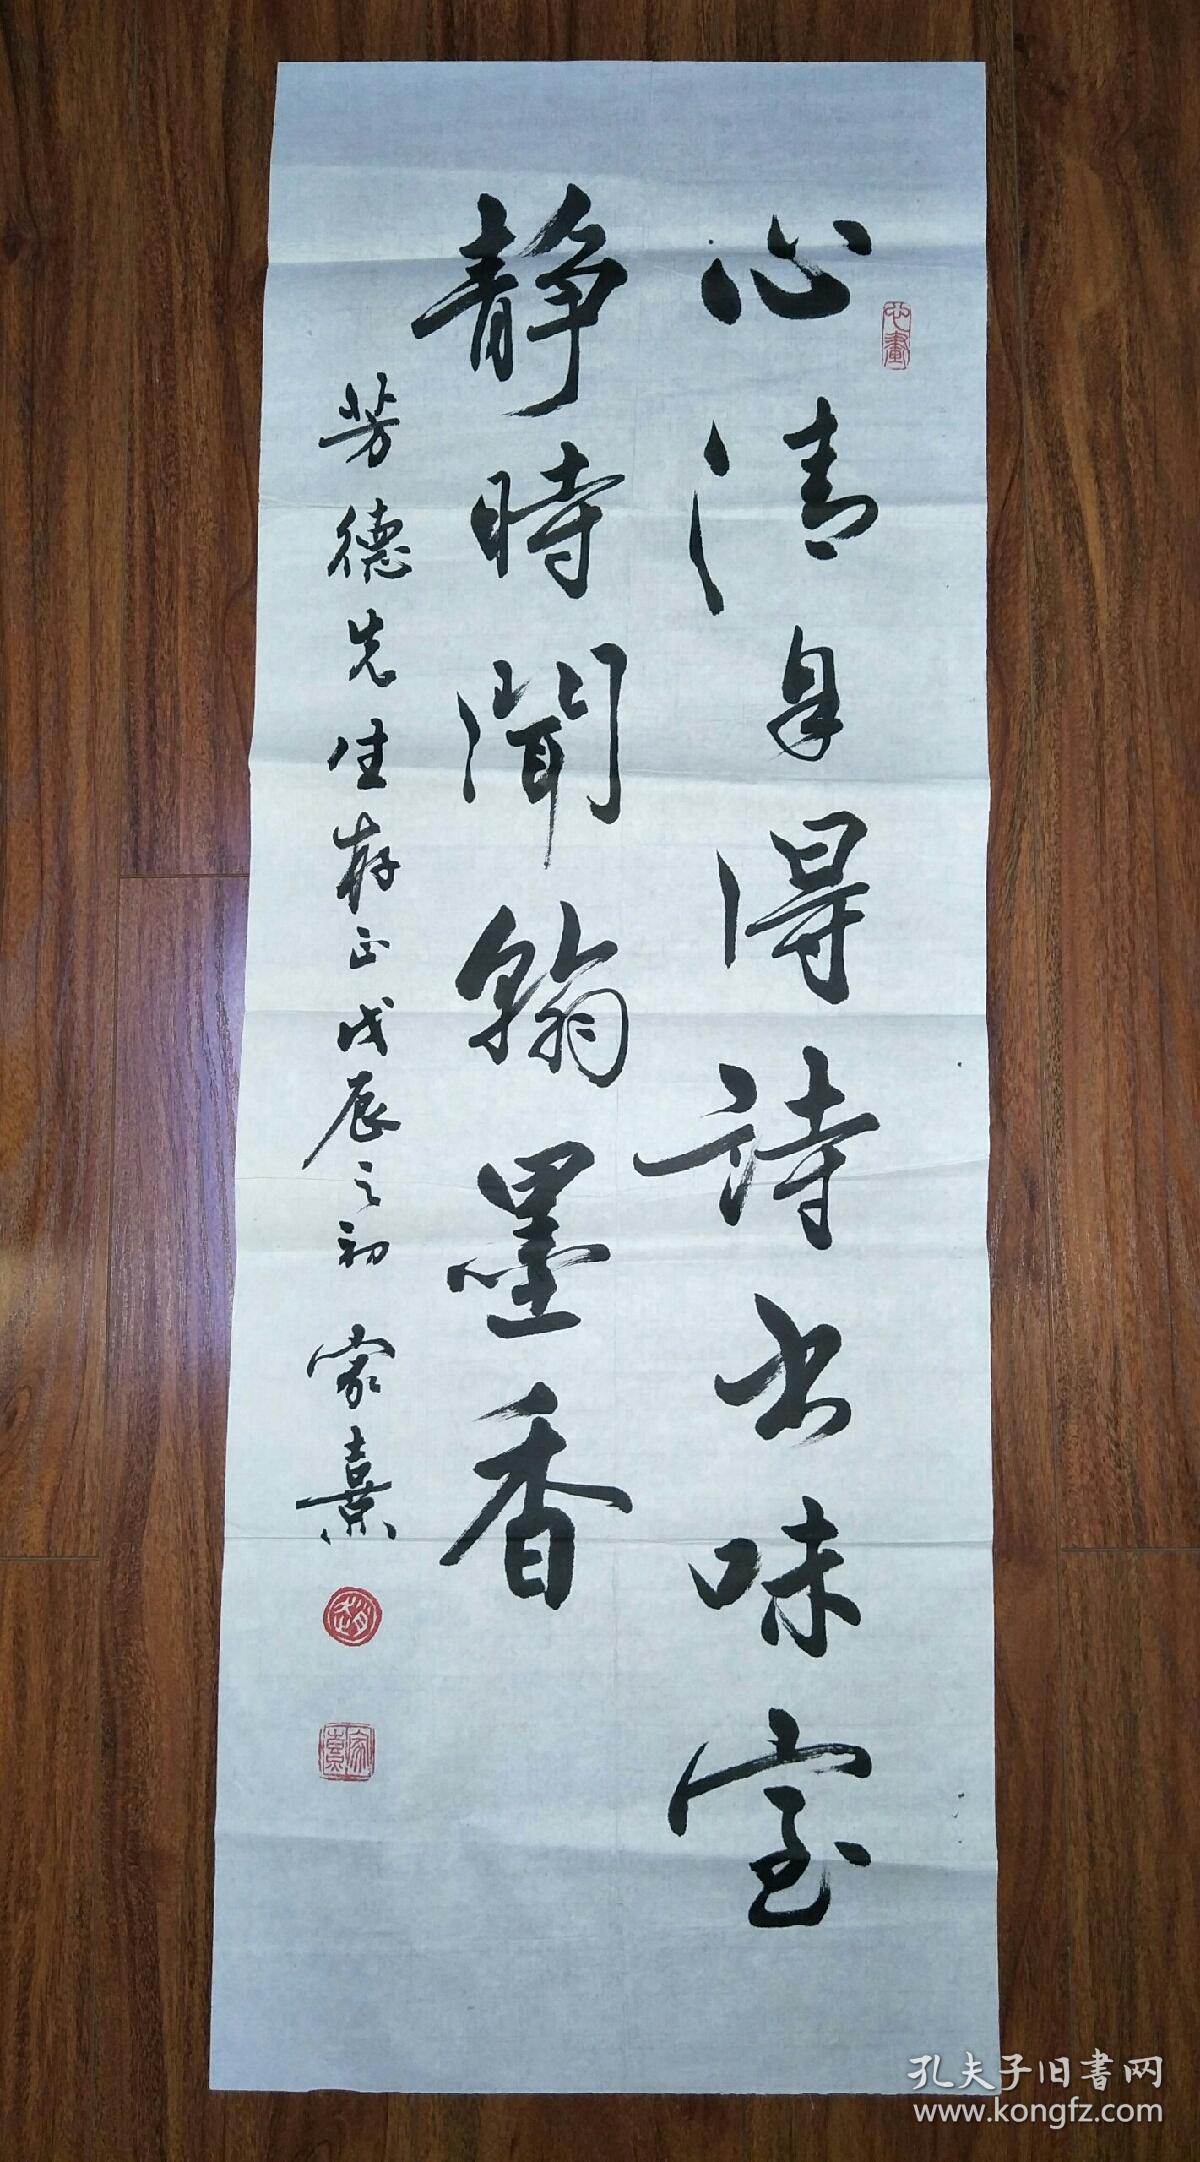 心畫
心清自得詩书味室
静時聞翰墨香
芳德先生存正戊辰之初 家熹
趙
家熹
孔夫子旧書网
www.kongfz.com